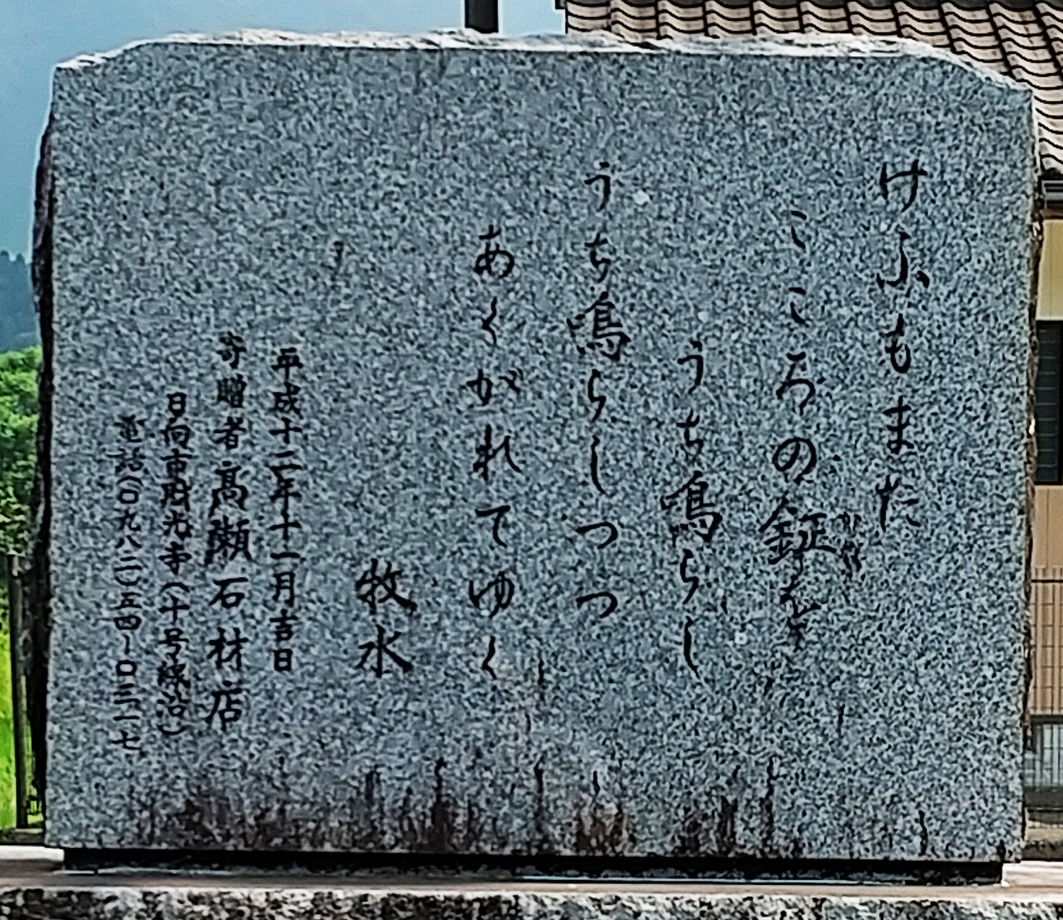 けふもまた
こころの鉦を
うち鳴らし
うち鳴らしつつ
あくがれてゆく
牧水
平成十二年十一月吉日
寄贈者高瀬石材店
日向市財光寺(十号線沿)
電話(〇九八二)五四-〇三一七